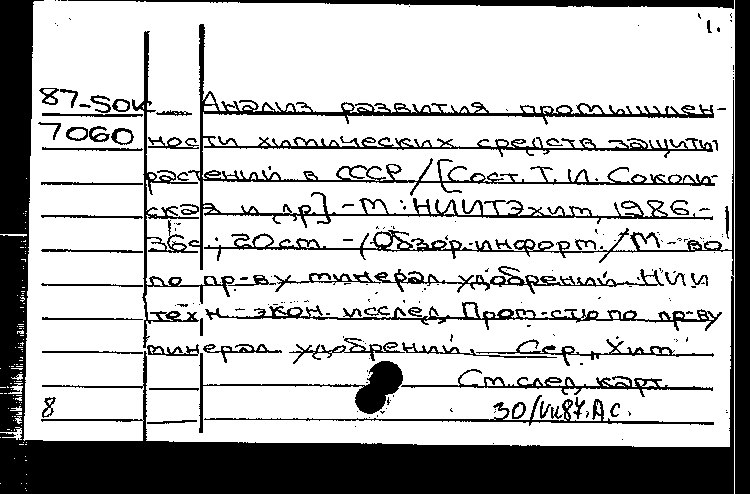 1.
87-50к Анализ развития промышлен-
7060 ности химических средств защиты
растений в СССР / [Сост. Т. И. Соколь-
ская и др.]. - М. : НИИТЭхим, 1986. -
36с ; 20см. - (Обзор. информ. / М-во
по пр-ву минерал. удобрений. НИИ
техн.-экон. исслед. Пром-стю по пр-ву
минерал. удобрений. Сер. „Хим.
См. след. карт.
8 30/VII87. А.С.